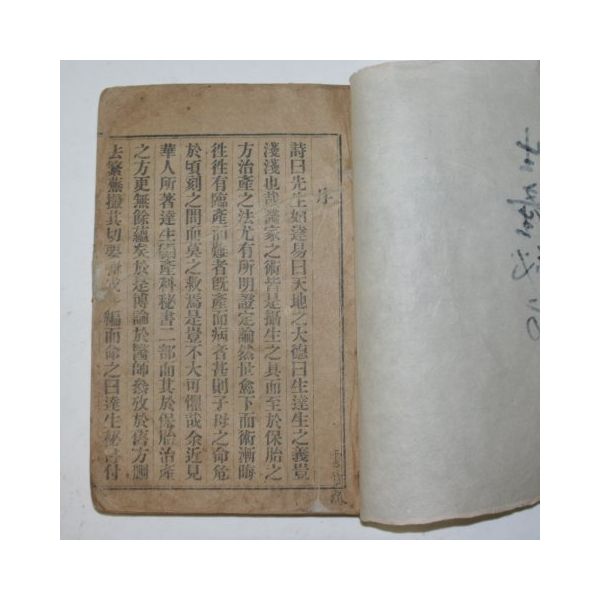 序
詩曰先生如達易曰天地之大德曰生達生之義豈
淺淺也哉醫家之術皆是攝生之具而至於保胎之
方治產之法尤有所明證定論然世愈下而術漸晦
徃徃有臨產而難者旣產而病者甚則子母之命危
於頃刻之間而莫之救焉是豈不大可懼哉余近見
華人所著達生編產科秘書二部而其於保胎治產
之方更無餘蘊矣於是博論於醫師叅攷於舊方刪
去繁蕪撮其切要 編而命之曰達生秘 付